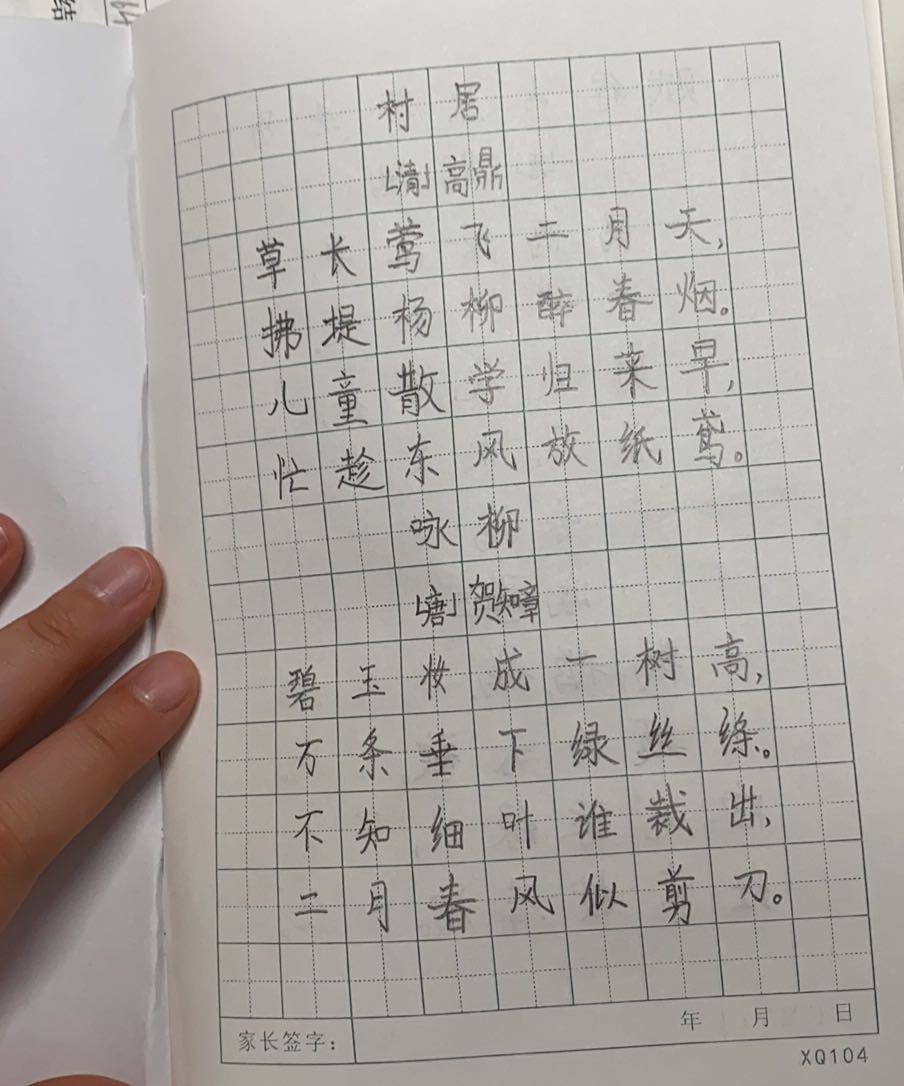 结
村居
[清]高鼎
草长莺飞二月天,
拂堤杨柳醉春烟。
儿童散学归来早,
忙趁东风放纸鸢。
咏柳
[唐]贺知章
碧玉妆成一树高,
万条垂下绿丝绦。
不知细叶谁裁出,
二月春风似剪刀。
家长签字： 年 月 日
XQ104